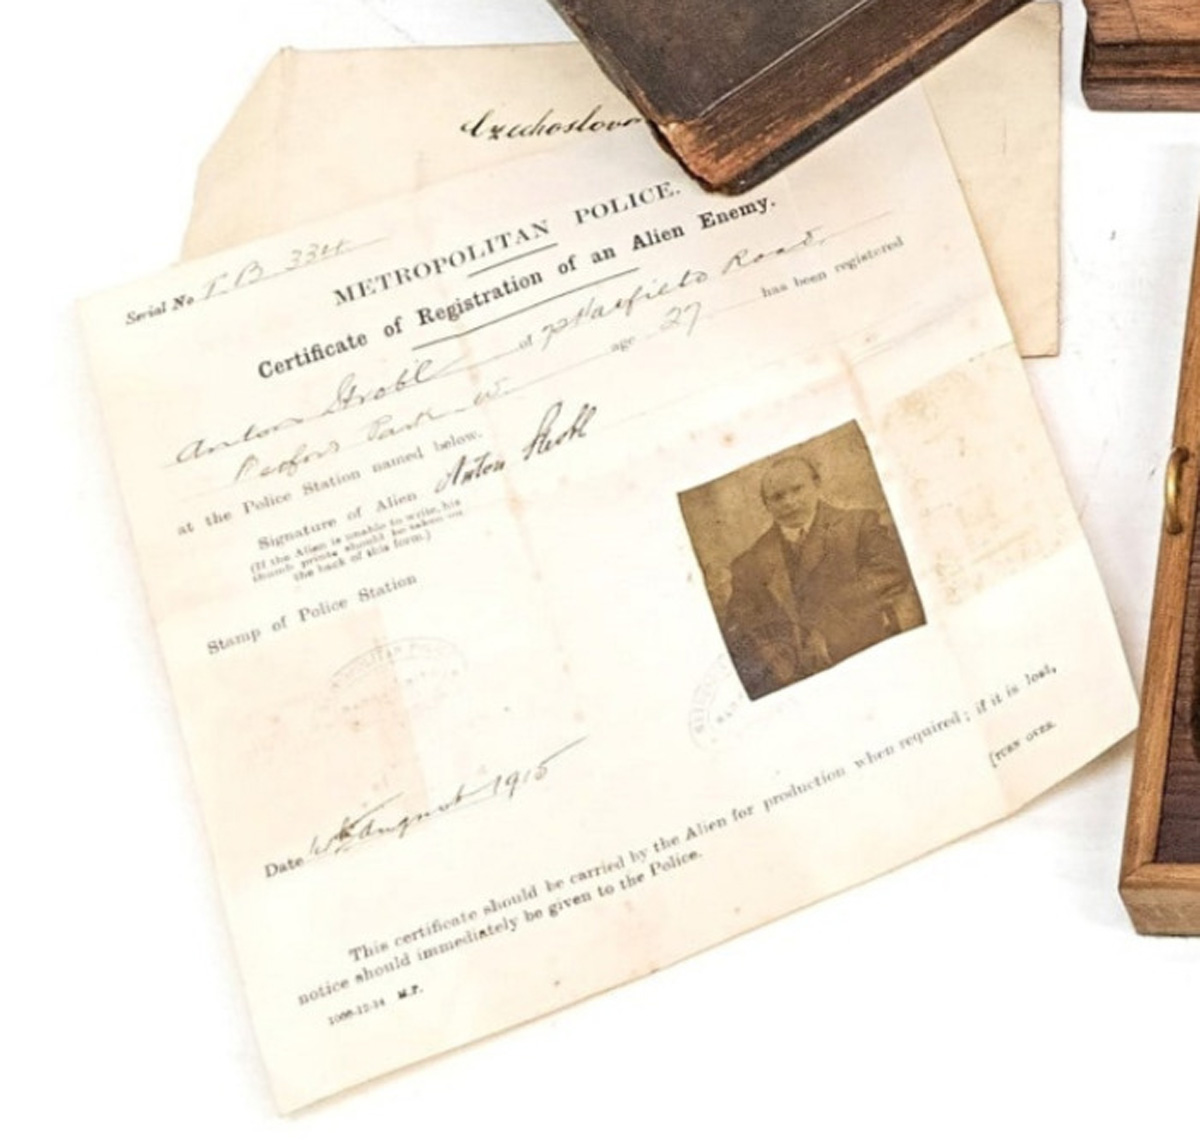 Czechoslova
Serial No
METROPOLITAN POLICE.
Certificate of Registration of an Alien Enemy.
Anton Strobl of Hatfield Road,
Park W. age 27 has been registered
at the Police Station named below.
Signature of Alien Anton Strobl
(If the Alien is unable to write, his
thumb prints should be taken on
the back of this form.)
Stamp of Police Station
METROPOLITAN POLICE
Date August 1915
This certificate should be carried by the Alien for production when required; if it is lost,
notice should immediately be given to the Police.
M.P.
[TURN OVER.